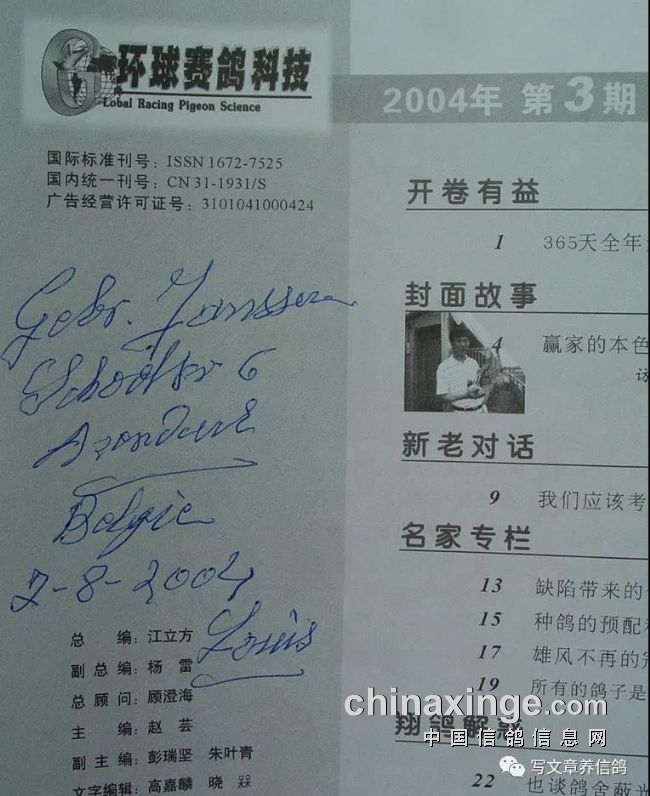 环球赛鸽科技
Lobal Racing Pigeon Science
国际标准刊号：ISSN 1672-7525
国内统一刊号：CN 31-1931/S
广告经营许可证号：3101041000424
Gebr. Janssen
6
Arendonk
Belgie
2-8-2004
Louis
总 编：江立方
副总编：杨 雷
总顾问：顾澄海
主 编：赵 芸
副主编：彭瑞坚 朱叶青
文字编辑：高嘉麟 晓
2004年 第3期
开卷有益
1 365天全年
封面故事
4 赢家的本色
新老对话
9 我们应该考
名家专栏
13 缺陷带来的
15 种鸽的预配
17 雄风不再的
19 所有的鸽子是
翔鸽解惑
22 也谈鸽舍蔽光
chinaxinge.com
中国信鸽信息网
写文章养信鸽